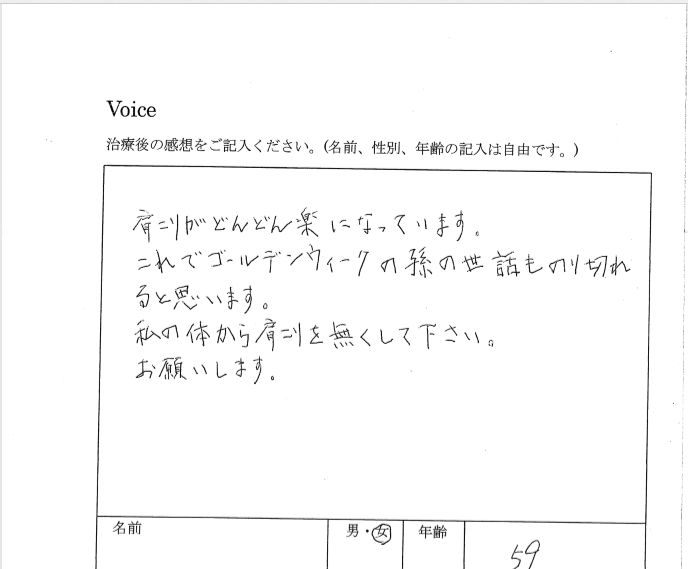 Voice
治療後の感想をご記入ください。(名前、性別、年齢の記入は自由です。)
肩こりがどんどん楽になっています。
これでゴールデンウィークの孫の世話ものり切れ
ると思います。
私の体から肩こりを無くして下さい。
お願いします。
名前 男・女 年齢 59